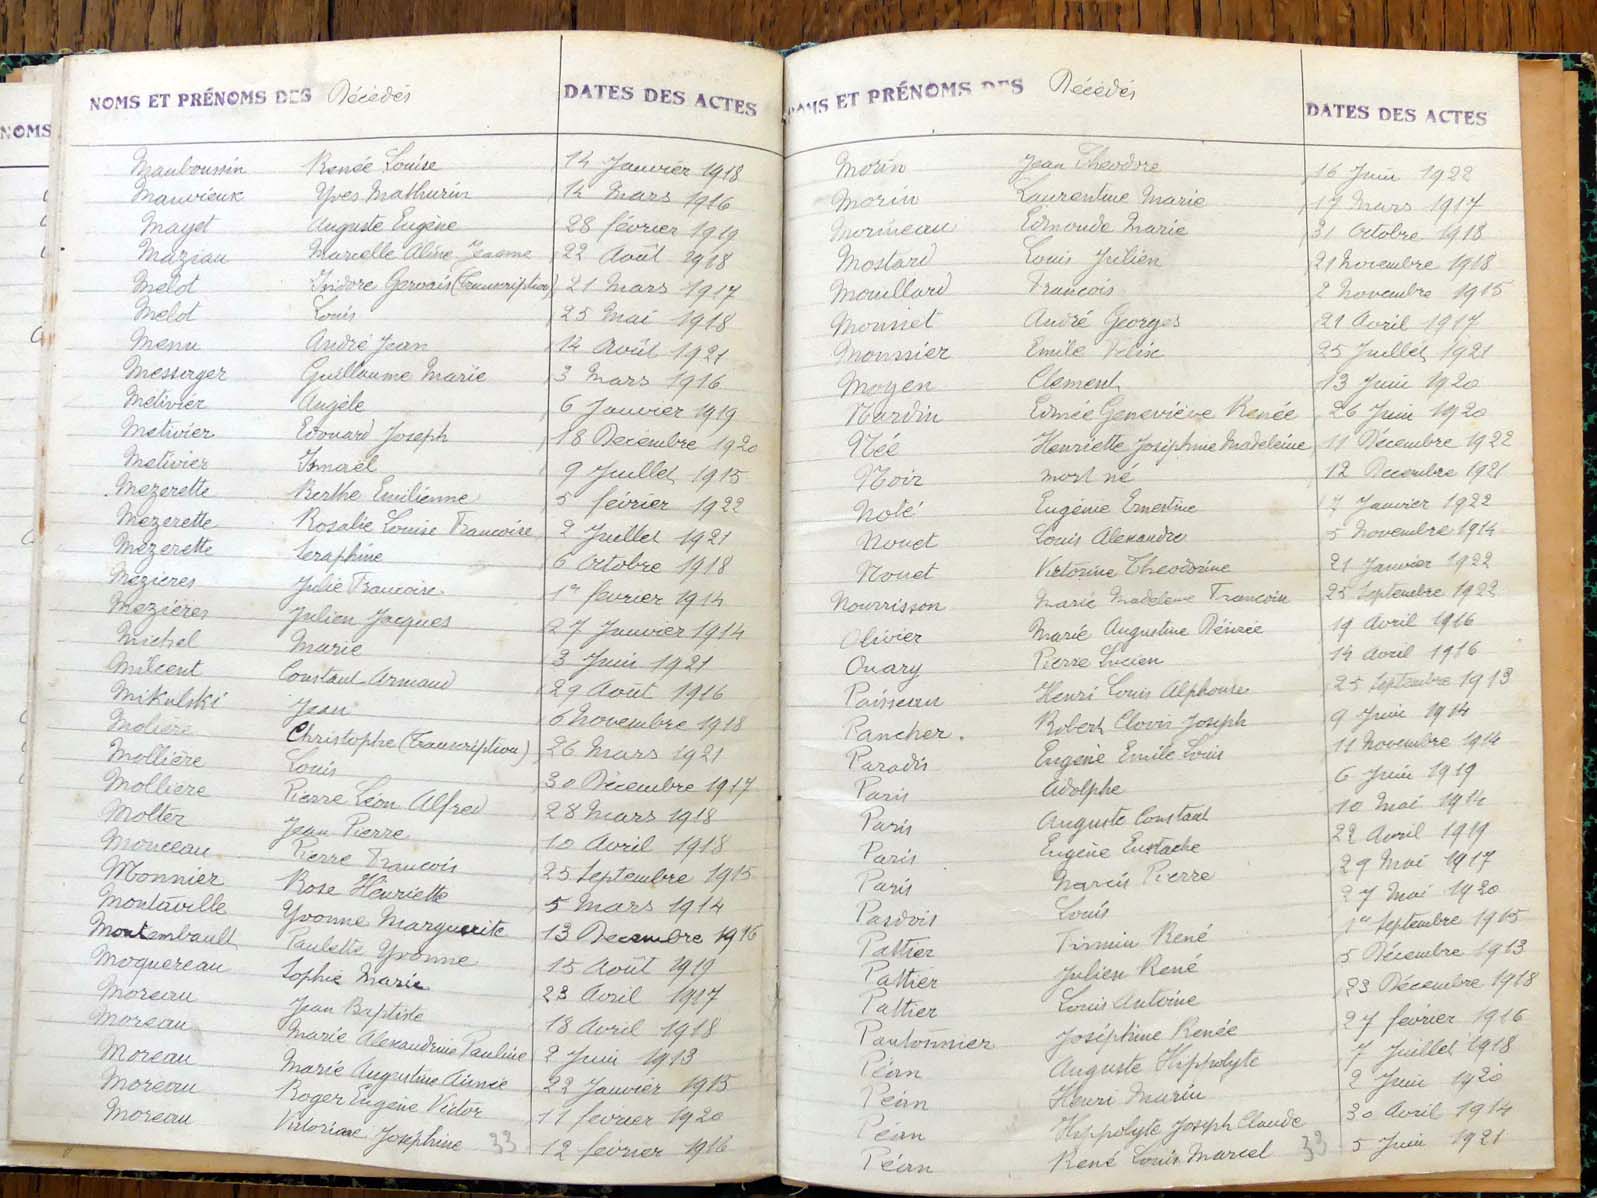 NOMS
NOMS ET PRÉNOMS DES Décédés DATES DES ACTES
Mauboussin Renée Louise 14 Janvier 1918
Mauvieux Yves Mathurin 14 Mars 1916
Mayet Auguste Eugène 28 février 1919
Maziau Marcelle Aline Jeanne 22 Août 1918
Melot Isidore Gervais (Transcription) 21 Mars 1917
Melot Louis 25 Mai 1918
Menu André Jean 14 Août 1921
Messager Guillaume Marie 3 Mars 1916
Metivier Angèle 6 Janvier 1919
Metivier Edouard Joseph 18 Decembre 1920
Metivier Ismael 9 Juillet 1915
Mezerette Berthe Emilienne 5 février 1922
Mezerette Rosalie Louise Francoise 2 Juillet 1921
Mezerette Seraphine 6 Octobre 1918
Mezieres Julie Francoise 1er fevrier 1914
Mezières Julien Jacques 27 Janvier 1914
Michel Marie 3 Juin 1921
Milcent Constant Armand 29 Août 1916
Mikulski Jean 6 Novembre 1918
Moliere Christophe (Transcription) 26 Mars 1921
Mollière Louis 30 Décembre 1917
Mollière Pierre Léon Alfred 28 Mars 1918
Molter Jean Pierre 10 Avril 1918
Monceau Pierre Francois 25 Septembre 1915
Monnier Rose Henriette 5 Mars 1914
Montaville Yvonne Marguerite 13 Decembre 1916
Montembault Paulette Yvonne 15 Août 1919
Moquereau Sophie Marie 23 Avril 1917
Moreau Jean Baptiste 18 Avril 1918
Moreau Marie Alexandrine Pauline 2 Juin 1913
Moreau Marie Augustine Aimée 22 Janvier 1915
Moreau Roger Eugène Victor 11 fevrier 1920
Moreau Victoriane Joséphine 33 12 février 1916
NOMS ET PRÉNOMS DES Décédés DATES DES ACTES
Morin Jean Theodore 16 Juin 1922
Morin Laurentine Marie 17 Mars 1917
Morineau Edmonde Marie 31 Octobre 1918
Mostard Louis Julien 21 Novembre 1918
Mouillard Francois 2 Novembre 1915
Mounet André Georges 21 Avril 1917
Mounier Emile Felix 25 Juillet 1921
Moyen Clement 13 Juin 1920
Nardin Edmée Geneviève Renée 26 Juin 1920
Née Henriette Josephine Madeleine 11 Décembre 1922
Noir mort né 12 Decembre 1921
Nolé Eugénie Ernestine 17 Janvier 1922
Nouet Louis Alexandre 5 Novembre 1914
Nouet Victorine Theodorine 21 Janvier 1922
Nourrisson Marie Madeleine 25 Septembre 1922
Olivier Marie Augustine Désirée 19 Avril 1916
Ouary Pierre Lucien 14 Avril 1916
Paisseau Henri Louis Alphonse 25 Septembre 1913
Pancher. Robert Clovis Joseph 9 Juin 1914
Paradis Eugène Emile Louis 11 Novembre 1914
Paris Adolphe 6 Juin 1919
Paris Auguste Constant 10 Mai 1914
Paris Eugène Eustache 22 Avril 1919
Paris Narcis Pierre 29 Mai 1917
Pasdois Louis 27 Mai 1920
Pattier Firmin René 1er Septembre 1915
Pattier Julien René 5 Décembre 1913
Pattier Louis Antoine 23 Décembre 1918
Pautonnier Joséphine Renée 27 février 1916
Péan Auguste Hippolyte 7 Juillet 1918
Péan Henri Marin 2 Juin 1920
Péan Hippolyte Joseph Claude 30 Avril 1914
Péan René Louis Marcel 33 5 Juin 1921